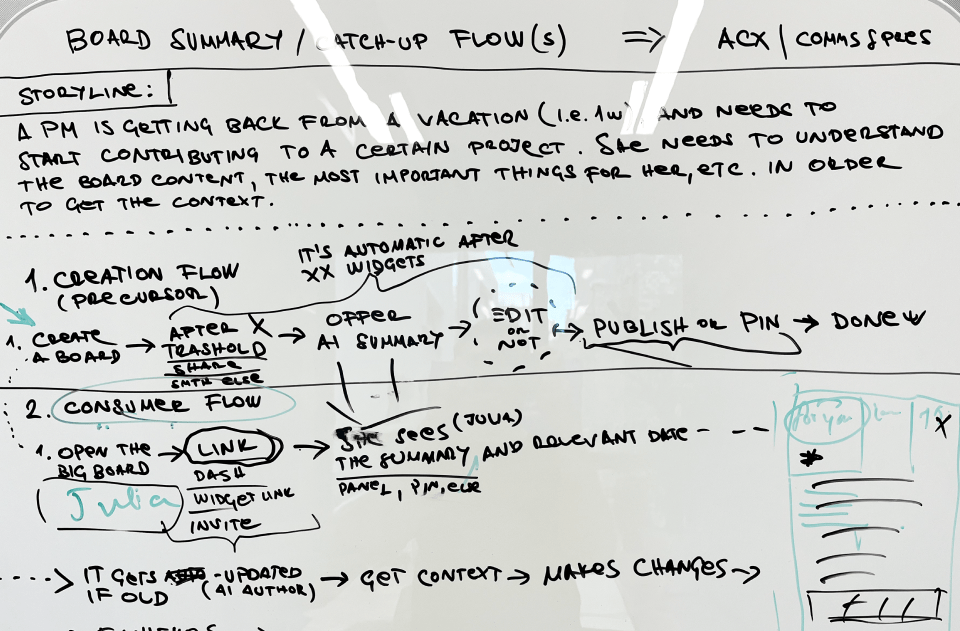 BOARD SUMMARY / CATCH-UP FLOW(s) => ACX | COMMS & PRES
STORYLINE:
A PM IS GETTING BACK FROM A VACATION (I.e. 1w) AND NEEDS TO
START CONTRIBUTING TO A CERTAIN PROJECT. SHE NEEDS TO UNDERSTAND
THE BOARD CONTENT, THE MOST IMPORTANT THINGS FOR HER, ETC. IN ORDER
TO GET THE CONTEXT.
IT'S AUTOMATIC AFTER
XX WIDGETS
1. CREATION FLOW
(PRECURSOR)
1. CREATE
A BOARD
→ AFTER X
TRASHOLD
SHARE
SMTH ELSE
→ OFFER
AI SUMMARY
→ EDIT
OR
NOT
→ PUBLISH OR PIN → DONE
2. CONSUMER FLOW
1. OPEN THE
BIG BOARD
(Julia)
→ LINK
DASH
WIDGET LINK
INVITE
→ SHE SEES (JULIA)
THE SUMMARY AND RELEVANT DATE - - -
PANEL, PIN, ELSE
for you
X
IT GETS - UPDATED
IF OLD (AI AUTHOR)
→ GET CONTEXT → MAKES CHANGES →